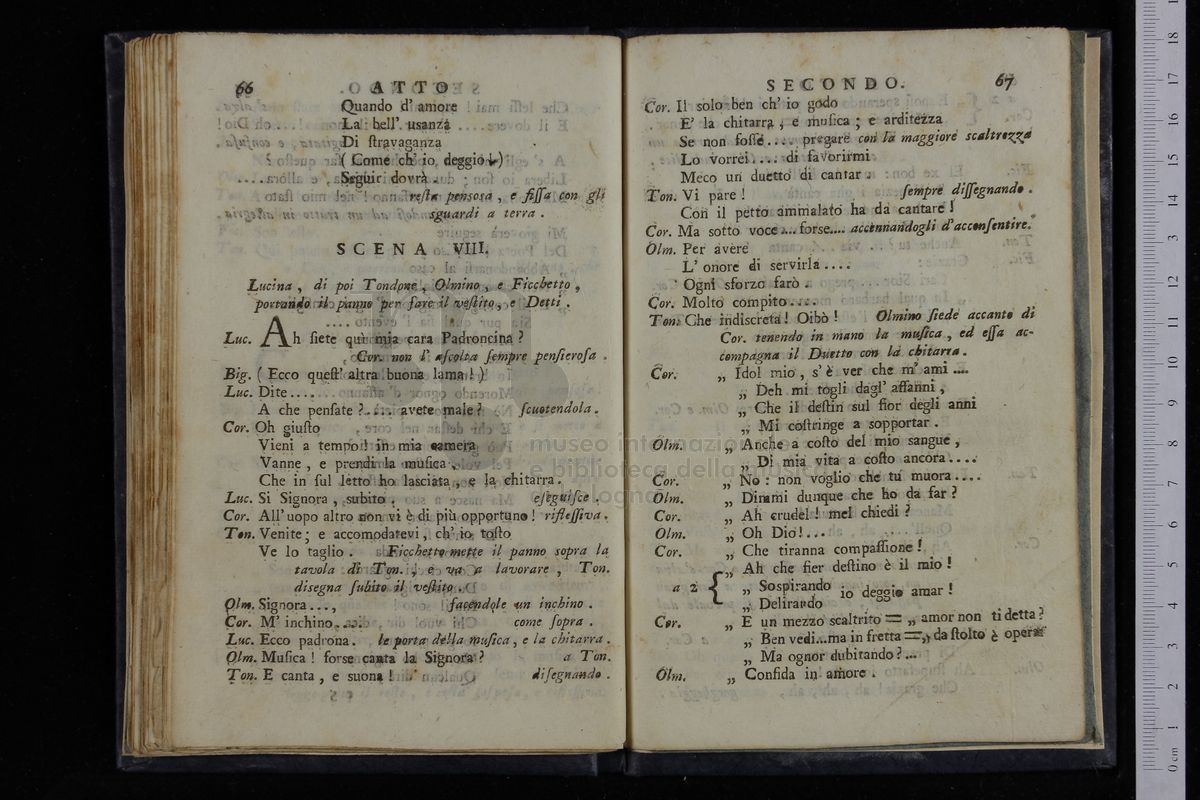 66
ATTO
Quando d' amore
La bell' usanza
Di ſtravaganza
( Come ch' io deggio )
Seguir dovrà .
reſta penſosa , e fiſſa con gli
sguardi a terra .
SCENA VIII.
Lucina , di poi Tondone , Olmino , e Ficchetto ,
portando il panno per fare il veſtito , e Detti .
Luc. Ah ſiete quì mia cara Padroncina ?
Cor. non l' aſcolta ſempre penſieroſa .
Big. ( Ecco queſt' altra buona lama ! )
Luc. Dite ....
A che penſate ? .... avete male ? ſcuotendola .
Cor. Oh giuſto
Vieni a tempo ! in mia camera
Vanne , e prendi la muſica ,
Che in ſul letto ho laſciata , e la chitarra .
Luc. Si Signora , subito . eſeguiſce .
Cor. All' uopo altro non vi è di più opportuno ! rifleſſiva .
Ton. Venite ; e accomodatevi , ch' io toſto
Ve lo taglio . Ficchetto mette il panno sopra la
tavola di Ton. , e va a lavorare , Ton.
disegna ſubito il veſtito .
Olm. Signora ..., facendole un inchino .
Cor. M' inchino . come ſopra .
Luc. Ecco padrona . le porta della muſica , e la chitarra .
Olm. Muſica ! forse canta la Signora ? a Ton.
Ton. E canta , e suona ! diſegnando .
SECONDO.
67
Cor. Il solo ben ch' io godo
E' la chitarra , e muſica ; e arditezza
Se non foſſe .... pregare con la maggiore scaltrezza
Lo vorrei .... di favorirmi
Meco un duetto di cantar .
Ton. Vi pare ! ſempre diſſegnando .
Con il petto ammalato ha da cantare !
Cor. Ma sotto voce .... forse .... accennandogli d'acconſentire .
Olm. Per avere
L' onore di servirla ....
Ogni sforzo farò .
Cor. Molto compito ....
Ton. Che indiscreta ! Oibò ! Olmino ſiede accanto di
Cor. tenendo in mano la muſica , ed eſſa ac-
compagna il Duetto con la chitarra .
Cor. „ Idol mio , s' è ver che m' ami ....
„ Deh mi togli dagl' affanni ,
„ Che il deſtin sul fior degli anni
„ Mi coſtringe a sopportar .
Olm. „ Anche a coſto del mio sangue ,
„ Di mia vita a coſto ancora ....
Cor. „ No : non voglio che tu muora ....
Olm. „ Dimmi dunque che ho da far ?
Cor. „ Ah crudel ! mel chiedi ?
Olm. „ Oh Dio ! ...
Cor. „ Che tiranna compaſſione !
„ Ah che fier deſtino è il mio !
a 2 { „ Sospirando io deggio amar !
„ Delirando
Cor. „ E un mezzo scaltrito = „ amor non ti detta ?
„ Ben vedi...ma in fretta =„ da ſtolto è operar
„ Ma ognor dubitando ? ...
Olm. „ Confida in amore .
museo internazionale
e biblioteca della musica
di bologna
0 cm 1 2 3 4 5 6 7 8 9 10 11 12 13 14 15 16 17 18